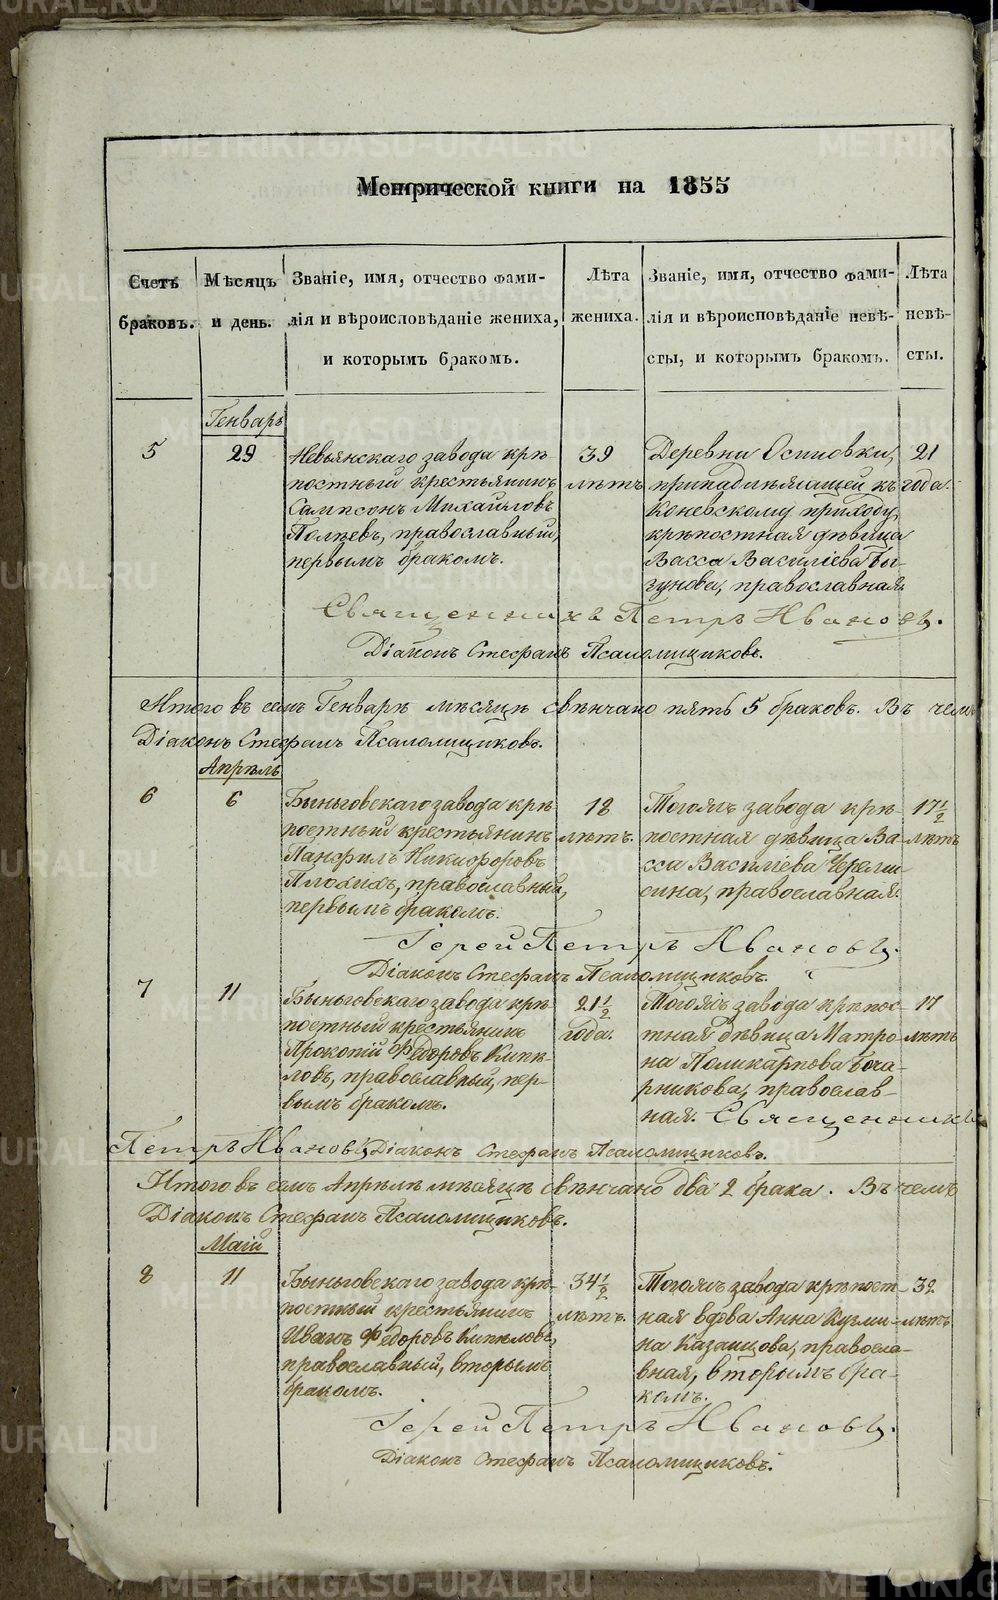 Метрической книги на 1855
Счетъ браковъ.
Мѣсяцъ и день.
Званіе, имя, отчество фами-
лія и вѣроисповѣданіе жениха,
и которымъ бракомъ.
Лѣта
жениха.
Званіе, имя, отчество фами-
лія и вѣроисповѣданіе невѣ-
сты, и которымъ бракомъ.
Лѣта
невѣ-
сты.
Генварь
5
29
Невьянскаго завода крѣ
постный крестьянинъ
Сампсонъ Михайловъ
Полѣевъ, православный,
первымъ бракомъ.
39
лѣтъ
Деревни Осиновки,
принадлежащей къ
Коневскому приходу,
крѣпостная дѣвица
Васса Василіева Бы-
гунова, православная.
21
года.
Священникъ Петръ Ивановъ.
Діаконъ Стефанъ Псаломщиковъ.
Итого въ семъ Генварѣ мѣсяцѣ свѣнчано пять 5 браковъ. Въ чемъ
Діаконъ Стефанъ Псаломщиковъ.
Апрѣль
6
6
Быньговскаго завода крѣ
постный крестьянинъ
Панфилъ Никифоровъ
Плохихъ, православный,
первымъ бракомъ.
18
лѣтъ.
Тогожъ завода крѣ-
постная дѣвица Ва-
сса Василіева Череми-
сина, православная.
17 1/2
лѣтъ
Іерей Петръ Ивановъ.
Діаконъ Стефанъ Псаломщиковъ.
7
11
Быньговскаго завода крѣ-
постный крестьянинъ
Прокопій Ѳедоровъ Кипѣ-
ловъ, православный, пер-
вымъ бракомъ.
21 1/2
года.
Тогожъ завода крѣпос-
тная дѣвица Матро-
на Поликарпова Боча-
рникова, православ-
ная. Священникъ
17
лѣтъ
Петръ Ивановъ Діаконъ Стефанъ Псаломщиковъ.
Итого въ семъ Апрѣлѣ мѣсяцѣ свѣнчано два 2 брака. Въ чемъ
Діаконъ Стефанъ Псаломщиковъ.
Маій
8
11
Быньговскаго завода крѣ-
постный крестьянинъ
Иванъ Ѳедоровъ Кипѣловъ,
православный, вторымъ
бракомъ.
34 1/2
лѣтъ.
Тогожъ завода крѣпост-
ная вдова Анна Кузьми-
на Казанцова, правосла-
вная, вторымъ бра-
комъ.
32
лѣтъ
Іерей Петръ Ивановъ.
Діаконъ Стефанъ Псаломщиковъ.
METRIKI.GASO-URAL.RU